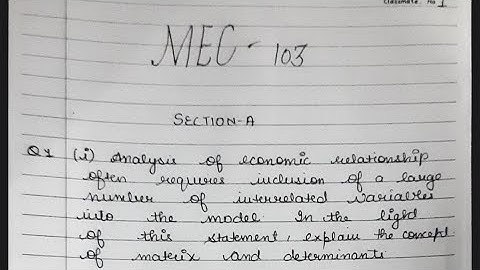 MEC - 103
SECTION-A
Q1 (i) Analysis of economic relationship
often requires inclusion of a large
number of interrelated variables
into the model. In the light
of this statement, explain the concept
of matrix and determinants